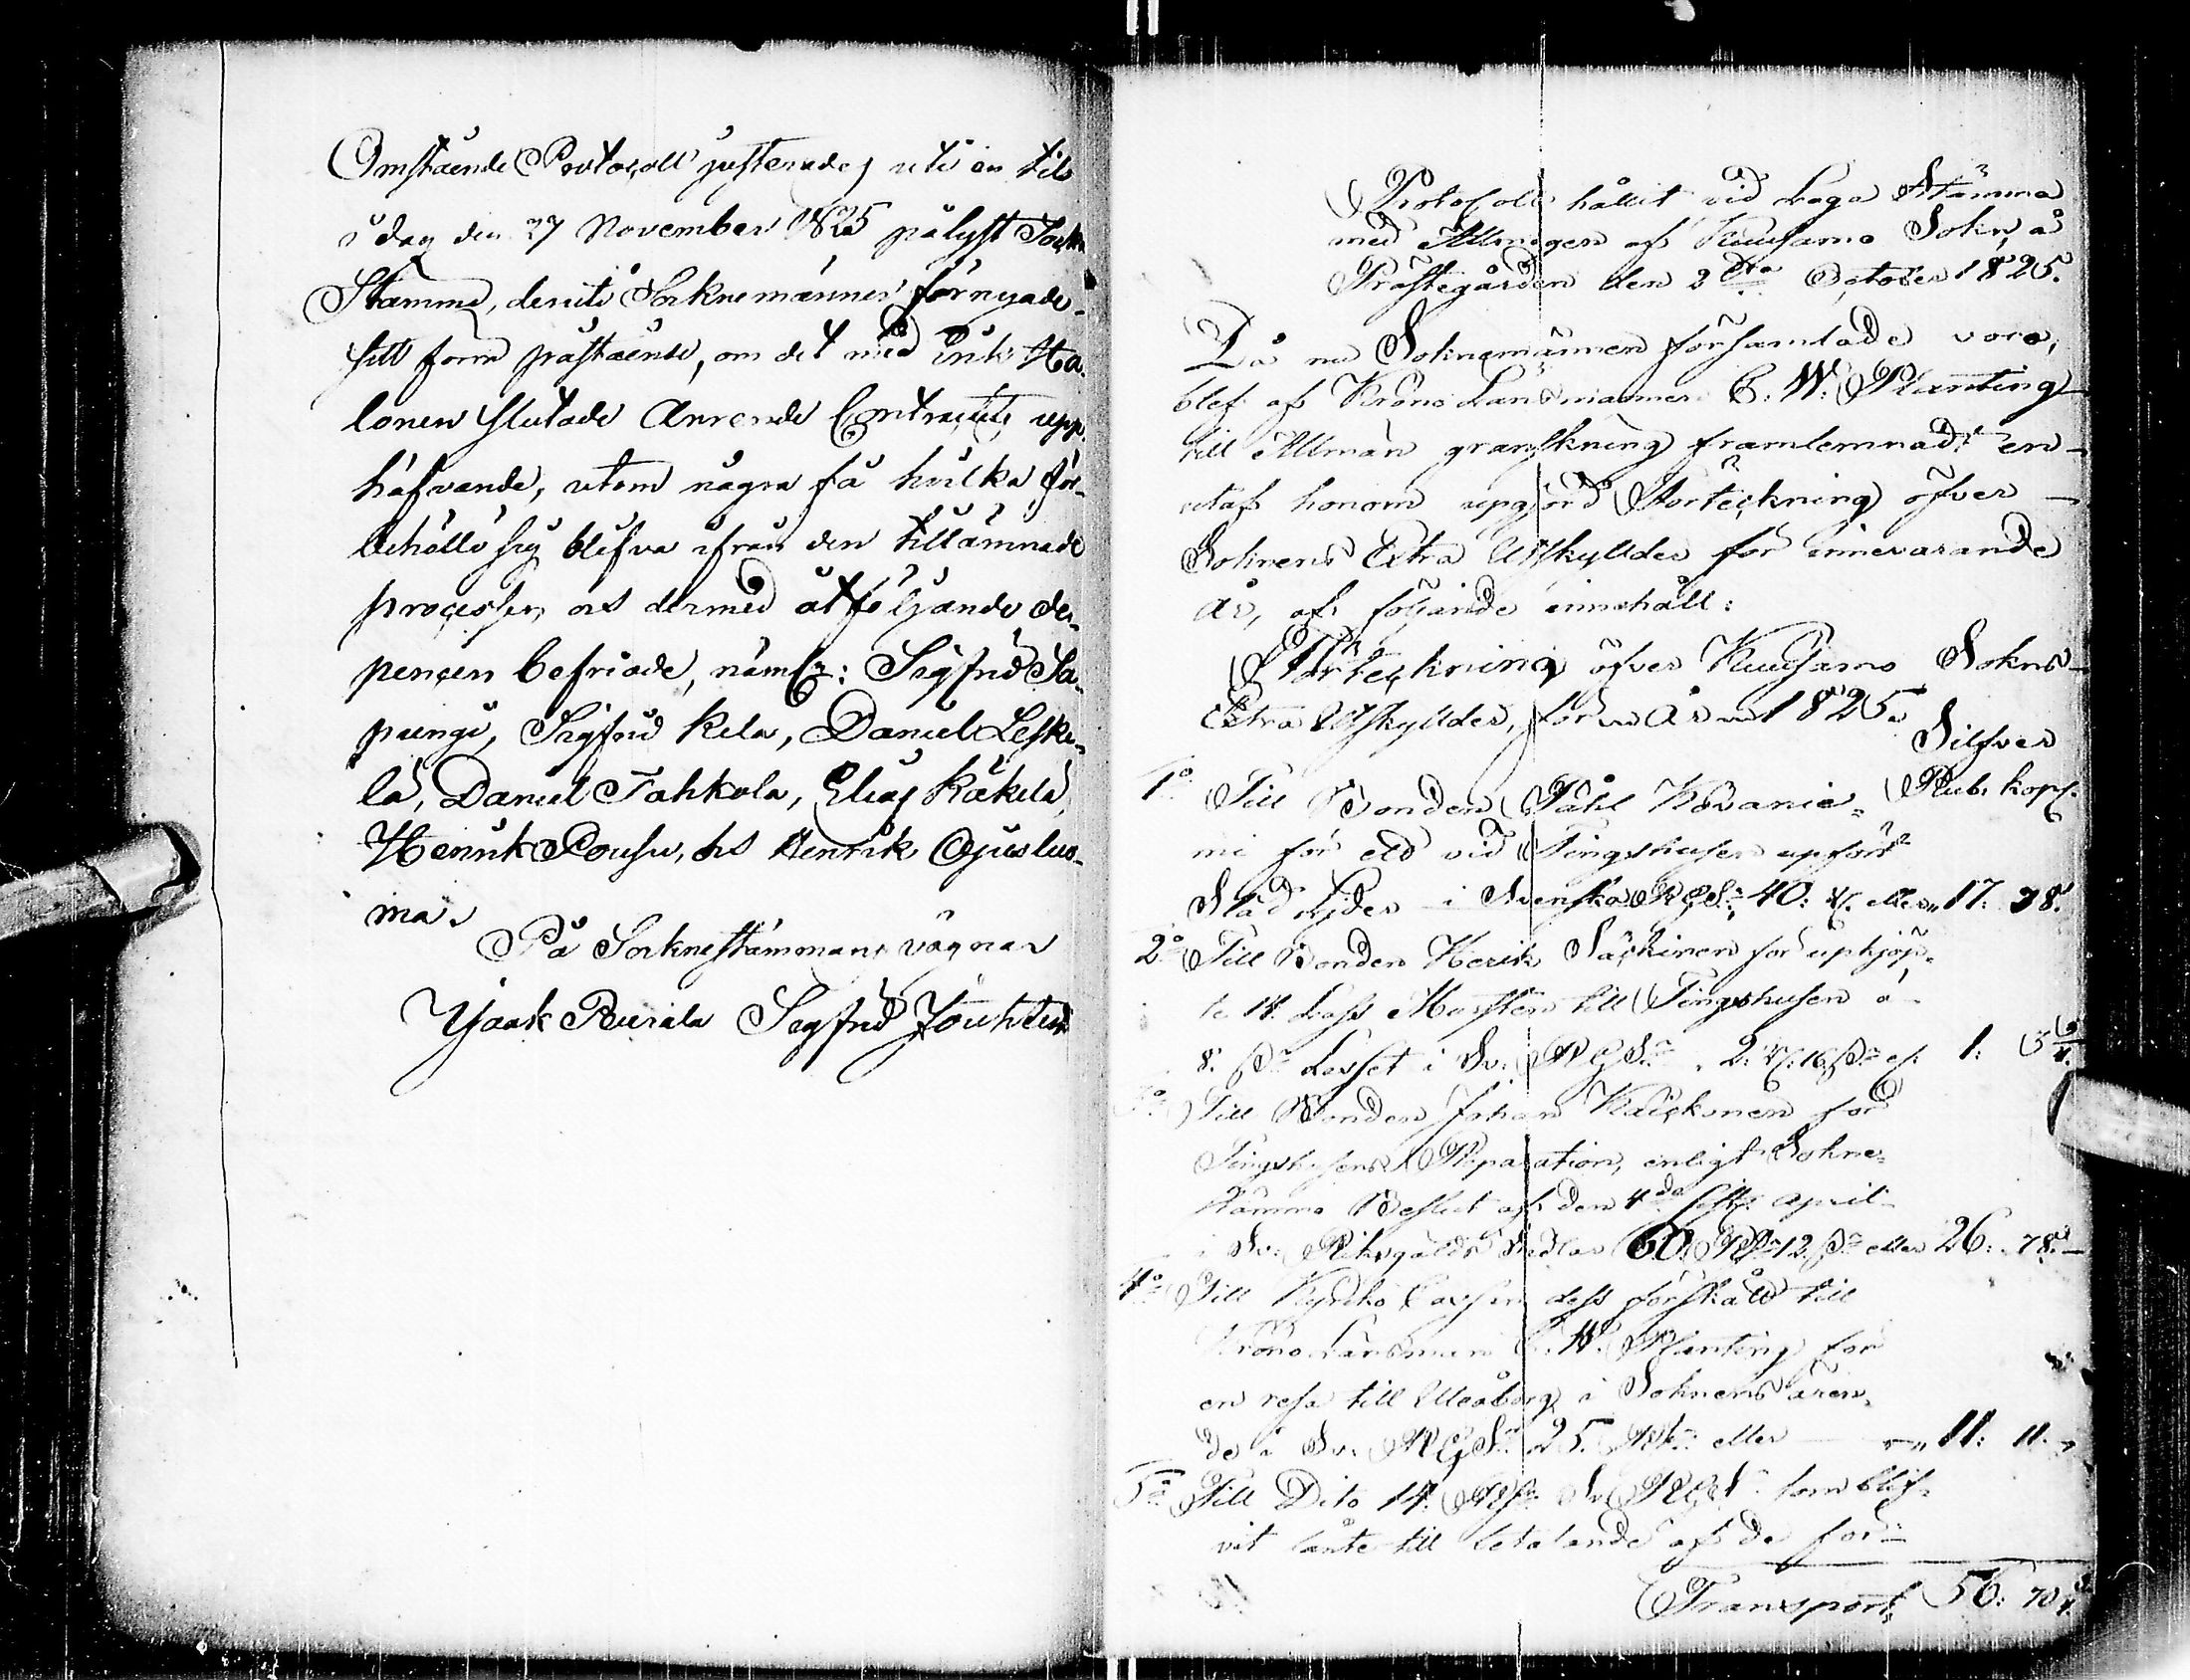 Omstående Protocoll justerades uti en till
i dag den 27 November 1825 pålyst Sockne
Stämma, deruti Socknemännen förnyade
sitt förra påstående, om det med Erik Ha-
lonen slutade Arrende Contractets upp-
häfvande, utom några få hvilka för-
behöllo sig blifva ifrån den tillämnade
processen och dermed åtföljande de-
pencen befriade, näml: Sigfrid Sa-
pungi, Sigfrid Kela, Daniel Leske-
lä, Daniel Tahkola, Elias Käkelä,
Henrik Pousu, och Henrik Ojusluo-
ma.
På Socknestämmans vägnar
Sigfrid
Protocoll hållit vid Laga Stämma
med Allmogen af Kuusamo Sokn, å
Prästegården den 2dra October 1825.
Då nu Soknemännen församlade voro,
blef af Krono Länsmannen C. W. Planting
till Allmän granskning framlemnad en
utaf honom upgjord Förteckning öfver
Soknens Extra Utskylder för innevarande
år, af följande innehåll:
Förteckning öfver Kuusamo Sokns
Extra Utskylder, för År 1825.
Silfver
Rub. kop.
1o Till Bonden Påhl
mi för eld vid Tingshusen upförd
i Svenska RGS: 40: eller 17: 78.
2o Till Bonden Henrik Säckinen för uphjöp-
te 14. Lass Mossten till Tingshusen a
8. Lasset i Sv. RGS 2: 16 1: 5
Till Bonden Johan Kaickonen för
Tingshusens Reparation, enligt Sokne-
stämmo Beslut af den 4de sistl. April
i Sv. Riksgälds Sedlar 60 12 eller 26: 78.
4o Till Kyrko Cassan dess förskått till
Krono Länsman C. W. Planting för
en resa till Uleåborg i Soknens ären-
de i Sv. RGS 25. eller 11: 11.
5o Till Dito 14. Sv. RGS som blif-
vit lånte till betalande af de för-
Transport 56: 70